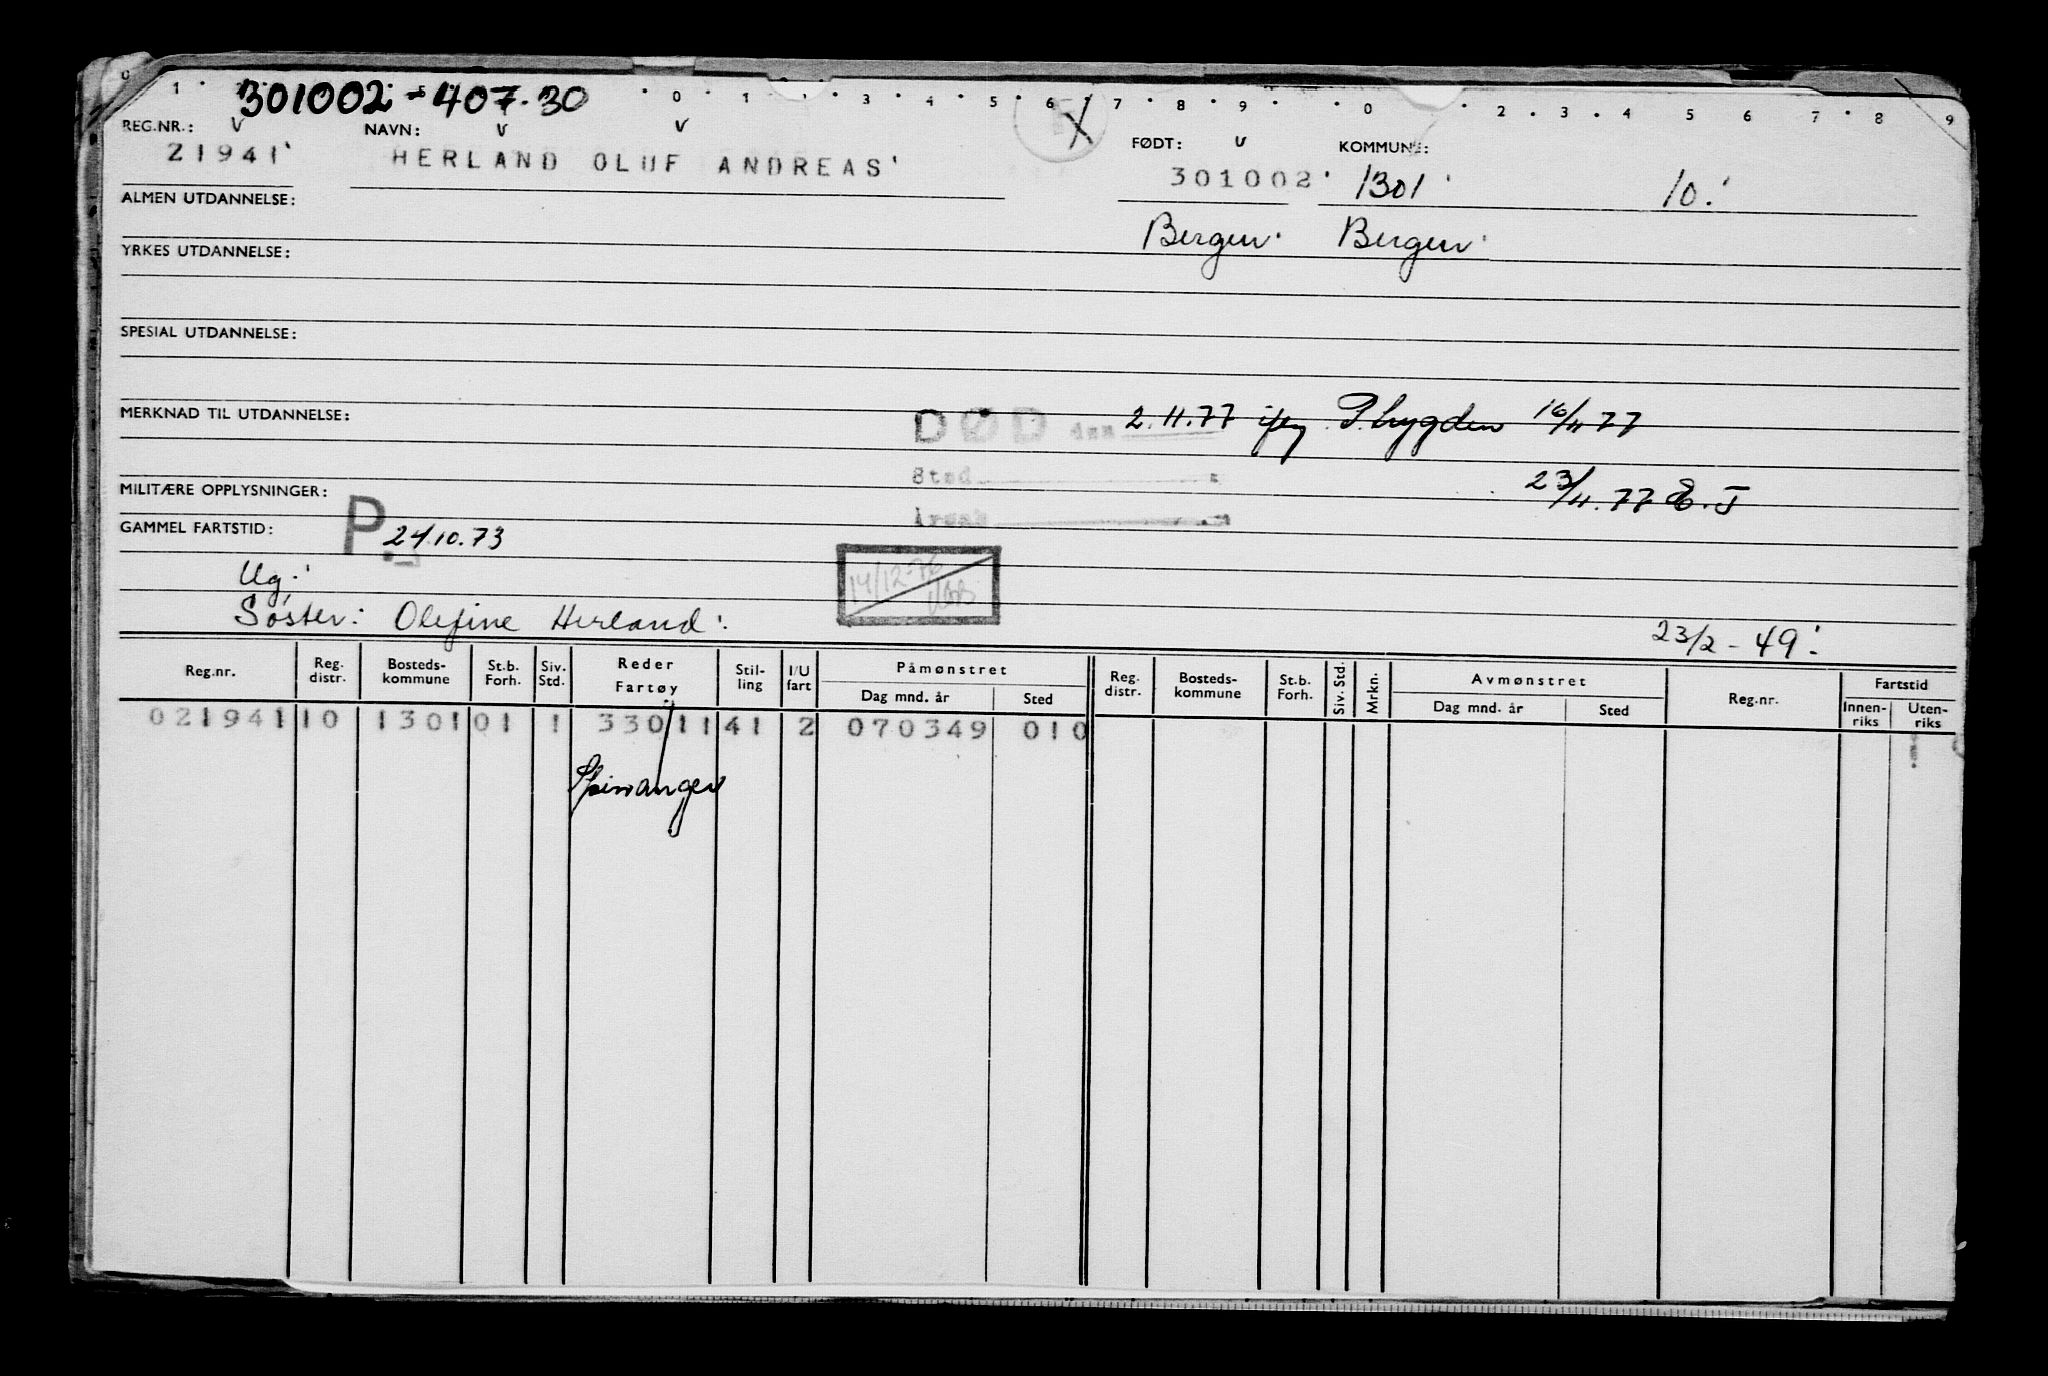 0 1 . 0 . 1 . 3 . 4 . 5 . 6 7 . 8 . 9 . . 0 . 2 . 3 . 4 5 6 7 . 8 9
301002-407.30
REG.NR.: v NAVN: v v X FØDT: v KOMMUNE:
21941' HERLAND OLUF ANDREAS' 301002. 1301 10.
ALMEN UTDANNELSE:
Bergen. Bergen
YRKES UTDANNELSE:
SPESIAL UTDANNELSE:
MERKNAD TIL UTDANNELSE: DØD den 2.11.77 P trygden 16/11 77
Sted
MILITÆRE OPPLYSNINGER: 23/11.77 E.J
Årsak
GAMMEL FARTSTID: P. 24.10.73
14/12-76
Ug.
Søster: Olefine Herland.
23/2-49.
Reg.nr. Reg. distr. Bosteds-kommune St.b. Forh. Siv. Std. Reder Fartøy Stil-ling I/U fart Påmønstret Dag mnd. år Sted Reg. distr. Bosteds-kommune St.b. Forh. Siv. Std. Mrkn. Avmønstret Dag mnd. år Sted Reg.nr. Fartstid Innen-riks Uten-riks
021941 10 1301 01 1 33011 41 2 070349 010
Spinanger